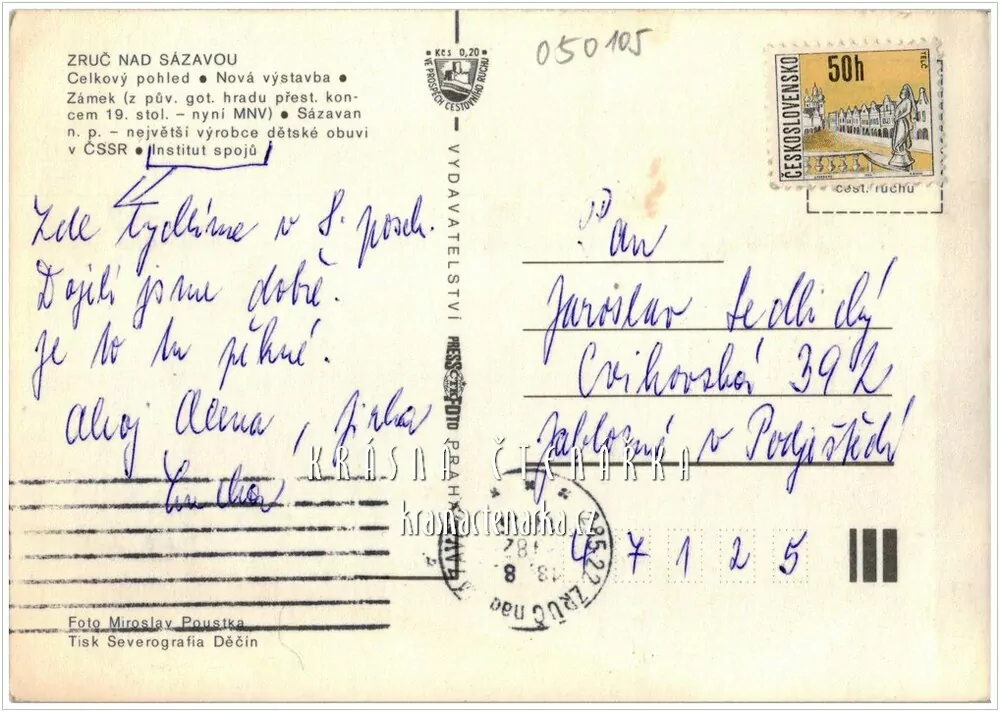 ZRUČ NAD SÁZAVOU
Celkový pohled ● Nová výstavba ●
Zámek (z pův. got. hradu přest. kon-
cem 19. stol. – nyní MNV) ● Sázavan
n. p. – největší výrobce dětské obuvi
v ČSSR ● Institut spojů
Zde bydlíme v 8. posch.
Dojeli jsme dobře.
Je to tu pěkné.
Ahoj Alena, Jirka
Foto Miroslav Poustka
Tisk Severografia Děčín
Kčs 0,20
VE PROSPĚCH CESTOVNÍHO RUCHU
VYDAVATELSTVÍ PRESSFOTO PRAHA
050105
ČESKOSLOVENSKO
50h
TELČ
cest. ruchu
Pan
Jaroslav Sedlický
Cvikovská 392
Jablonné v Podještědí
47125
KRÁSNÁ ČTENÁŘKA
krasnactenarka.cz
285 22 ZRUČ nad